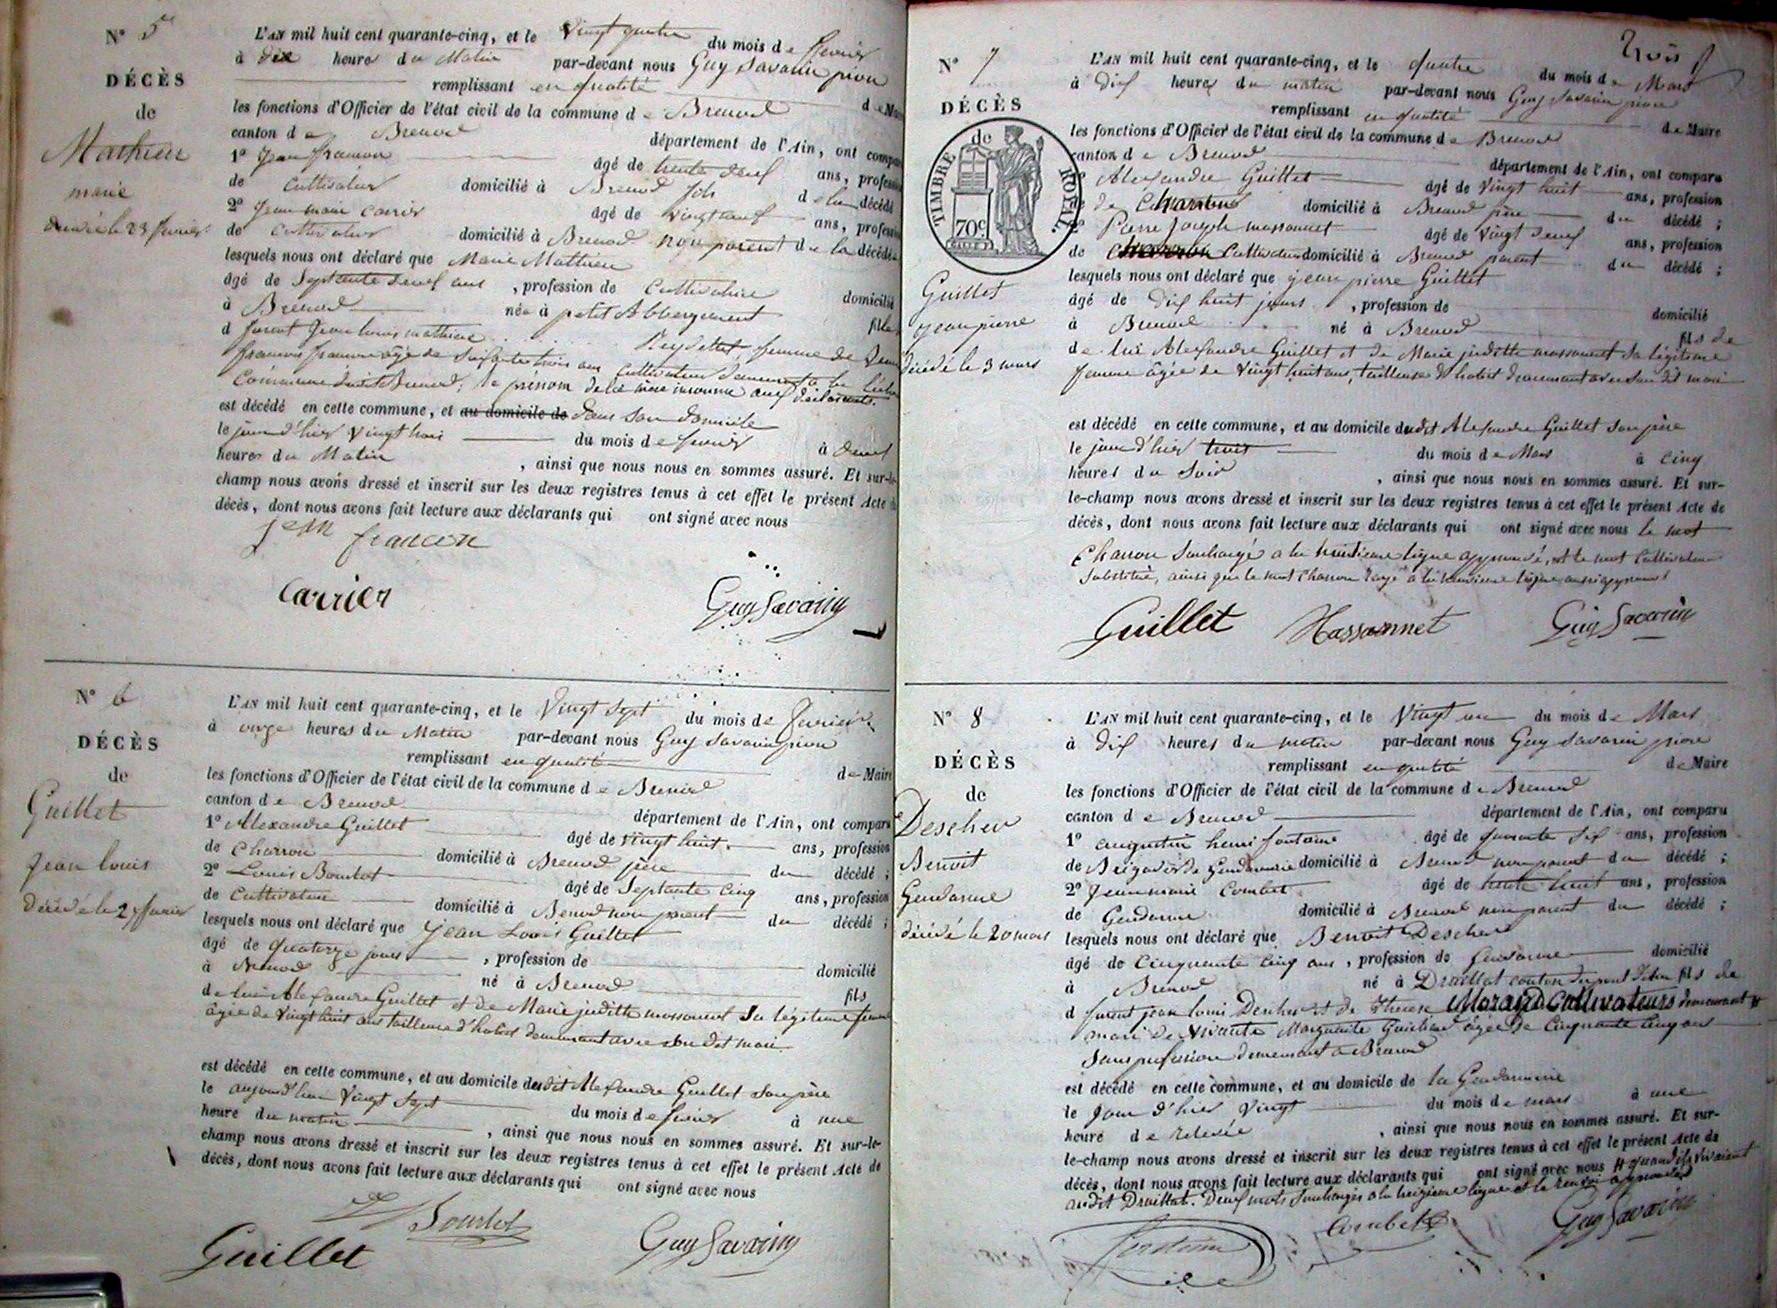 N° 5
DÉCÈS
de
Mathieu
marie
décédé le 23 février
L'AN mil huit cent quarante-cinq, et le Vingt quatre du mois de février
à dix heures du Matin par-devant nous Guy Savarin pierre
remplissant en qualité de Maire
les fonctions d'Officier de l'état civil de la commune de Brenod
canton de Brenod département de l'Ain, ont comparu
1° Jean françon âgé de trente neuf ans, profession
de cultivateur domicilié à Brenod fils de la décédé
2° Jean marie Carrier âgé de vingt neuf ans, profession
de cultivateur domicilié à Brenod non parent de la décédée
lesquels nous ont déclaré que Marie Mathieu
âgé de Septante deux ans, profession de Cultivatrice domicilié
à Brenod née à petit Abbergement fille
d feront Jean Louis mathieu Reydellet, femme de
françois françon âgé de Soixante trois ans cultivateur demeurant
Commune dudit Brenod, le prénom de la mère inconnu aux déclarants.
est décédé en cette commune, et au domicile de dans son domicile
le jour d'hier vingt trois du mois de février à deux
heures du Matin, ainsi que nous nous en sommes assuré. Et sur-le-
champ nous avons dressé et inscrit sur les deux registres tenus à cet effet le présent Acte de
décès, dont nous avons fait lecture aux déclarants qui ont signé avec nous
jean françon
Carrier Guy Savarin
N° 6
DÉCÈS
de
Guillet
Jean louis
Décédé le 27 février
L'AN mil huit cent quarante-cinq, et le Vingt Sept du mois de février
à onze heures du Matin par-devant nous Guy Savarin pierre
remplissant en qualité de Maire
les fonctions d'Officier de l'état civil de la commune de Brenod
canton de Brenod département de l'Ain, ont comparu
1° Alexandre Guillet âgé de vingt huit ans, profession
de Charron domicilié à Brenod père du décédé ;
2° Louis Bourlot âgé de Septante cinq ans, profession
de Cultivateur domicilié à Brenod non parent du décédé ;
lesquels nous ont déclaré que Jean Louis Guillet
âgé de quatorze jours, profession de domicilié
à Brenod né à Brenod fils
de lui Alexandre Guillet et de Marie judith massonnet Sa légitime femme
âgée de vingt huit ans tailleuse d'habits demeurant avec son dit mari
est décédé en cette commune, et au domicile dudit Alexandre Guillet son père
le aujourd'hui Vingt Sept du mois de février à une
heure du matin, ainsi que nous nous en sommes assuré. Et sur-le-
champ nous avons dressé et inscrit sur les deux registres tenus à cet effet le présent Acte de
décès, dont nous avons fait lecture aux déclarants qui ont signé avec nous
Bourlot
Guillet Guy Savarin
trois
N° 7
DÉCÈS
de
TIMBRE ROYAL
70c
Guillet
jean pierre
décédé le 3 mars
L'AN mil huit cent quarante-cinq, et le quatre du mois de Mars
à dix heures du matin par-devant nous Guy Savarin pierre
remplissant en qualité de Maire
les fonctions d'Officier de l'état civil de la commune de Brenod
canton de Brenod département de l'Ain, ont comparu
Alexandre Guillet âgé de vingt huit ans, profession
de Charron domicilié à Brenod père du décédé ;
Pierre Joseph massonnet âgé de vingt deux ans, profession
de Cultivateur domicilié à Brenod parent du décédé ;
lesquels nous ont déclaré que jean pierre Guillet
âgé de dix huit jours, profession de domicilié
à Brenod né à Brenod fils de
de lui Alexandre Guillet et de Marie judith massonnet Sa légitime
femme âgée de Vingt huit ans, tailleuse d'habits demeurant avec son dit mari
est décédé en cette commune, et au domicile dudit Alexandre Guillet son père
le jour d'hier trois du mois de Mars à cinq
heures du Soir, ainsi que nous nous en sommes assuré. Et sur-
le-champ nous avons dressé et inscrit sur les deux registres tenus à cet effet le présent Acte de
décès, dont nous avons fait lecture aux déclarants qui ont signé avec nous le mot
Charron Surchargé à la huitieme ligne approuvé, et le mot Cultivateur
Substitué, ainsi que le mot Charron rayé à la ligne aussi approuvé
Guillet Massonnet Guy Savarin
N° 8
DÉCÈS
de
Descher
Benoit
Gendarme
décédé le 20 mars
L'AN mil huit cent quarante-cinq, et le Vingt un du mois de Mars
à dix heures du matin par-devant nous Guy Savarin pierre
remplissant en qualité de Maire
les fonctions d'Officier de l'état civil de la commune de Brenod
canton de Brenod département de l'Ain, ont comparu
1° augustin henri fontaine âgé de quarante Six ans, profession
de Brigadier de Gendarmerie domicilié à Brenod non parent du décédé ;
2° Jean marie Combet âgé de trente huit ans, profession
de Gendarme domicilié à Brenod non parent du décédé ;
lesquels nous ont déclaré que Benoit Descher
âgé de Cinquante Cinq ans, profession de Gendarme domicilié
à Brenod né à Druillat canton du pont d'Ain fils de
d furent jean louis Descher et de Therese Morand Cultivateurs demeurant #
mari de Vivante Marguerite Guichard âgée de Cinquante Cinq ans
Sans profession demeurant à Brenod
est décédé en cette commune, et au domicile de la Gendarmerie
le Jour d'hier Vingt du mois de mars à une
heure de relevée, ainsi que nous nous en sommes assuré. Et sur-
le-champ nous avons dressé et inscrit sur les deux registres tenus à cet effet le présent Acte de
décès, dont nous avons fait lecture aux déclarants qui ont signé avec nous # quand ils vivaient
audit Druillat. Deux mots Surchargés à la treizieme ligne et le renvoi approuvés
fontaine Combet Guy Savarin